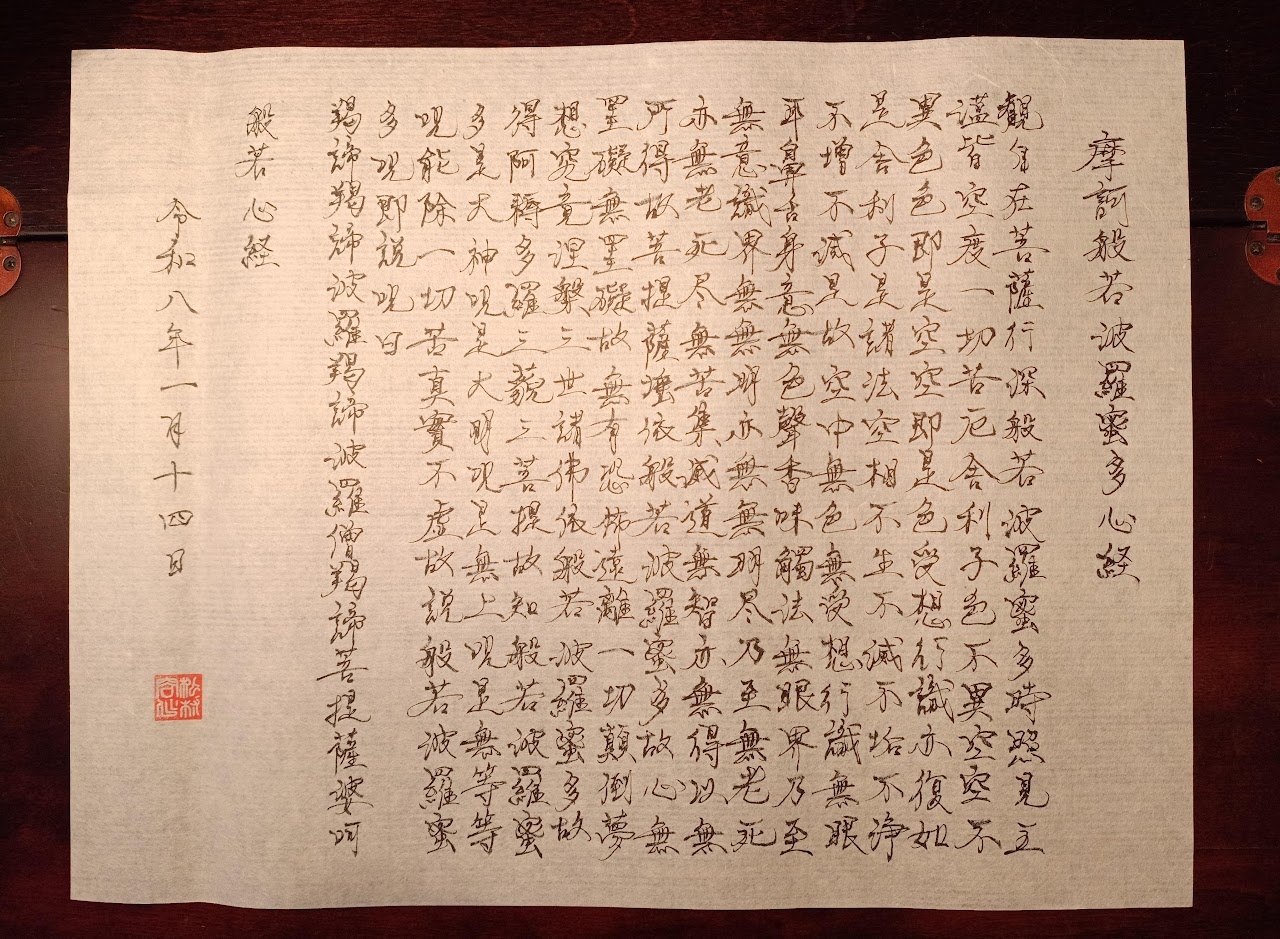 摩訶般若波羅蜜多心経
觀自在菩薩行深般若波羅蜜多時照見五
蘊皆空度一切苦厄舎利子色不異空空不
異色色即是空空即是色受想行識亦復如
是舎利子是諸法空相不生不滅不垢不浄
不増不減是故空中無色無受想行識無眼
耳鼻舌身意無色聲香味觸法無眼界乃至
無意識界無無明亦無無明尽乃至無老死
亦無老死尽無苦集滅道無智亦無得以無
所得故菩提薩埵依般若波羅蜜多故心無
罣礙無罣礙故無有恐怖遠離一切顛倒夢
想究竟涅槃三世諸佛依般若波羅蜜多故
得阿耨多羅三藐三菩提故知般若波羅蜜
多是大神呪是大明呪是無上呪是無等等
呪能除一切苦真實不虚故説般若波羅蜜
多呪即説呪曰
羯諦羯諦波羅羯諦波羅僧羯諦菩提薩婆呵
般若心経
令和八年一月十四日
松村